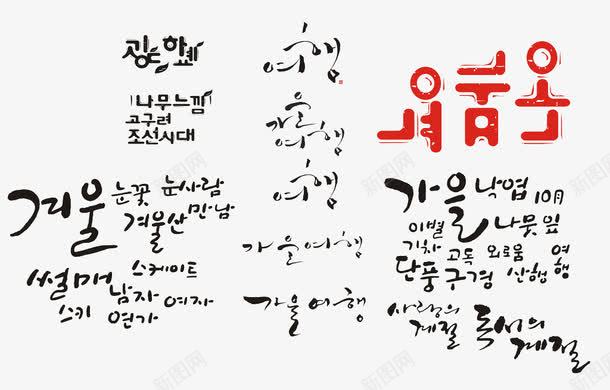 여행
나무느낌
고구려
조선시대
가을
여행
여행
가을여행
가을여행
겨울
눈꽃
눈사람
겨울산
만남
썰매
스케이트
남자
여자
스키
연가
가을
낙엽
10月
이별
나뭇잎
기차
고독
외로움
여행
단풍
구경
산행
사랑의
계절
독서의
계절